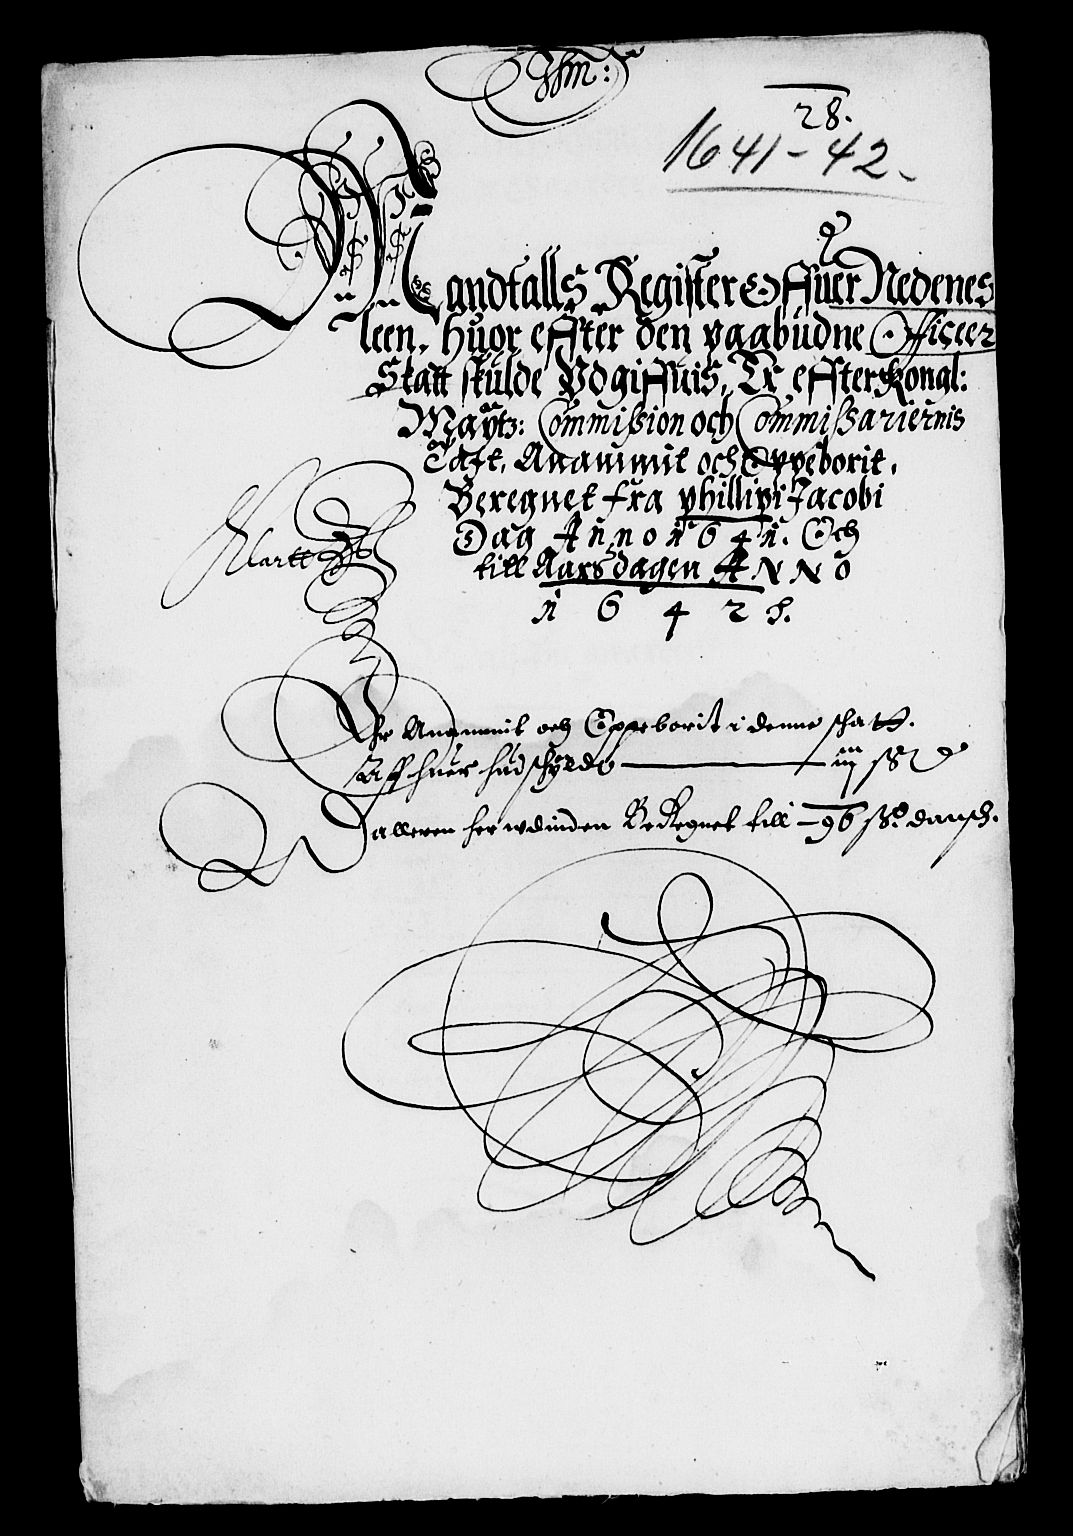 28.
1641-42.
Mandtalls Register Offuer Nedenes
leen. Huor efter den paabudne Officeer
Skatt skulde Udgiffuis, Er effter Kongl:
Maytz: Commißion och Commißariernis
Taxt, Anammit och Oppeborit,
Beregnet fra phillipi Jacobi
Dag Anno 1641. Och
till Aarsdagen Anno
1642
Klartt
Er Anammit och Oppeborit i denne schatt.
Aff huer
alleren her udinden Beregnet till - 96 ß. dansch.